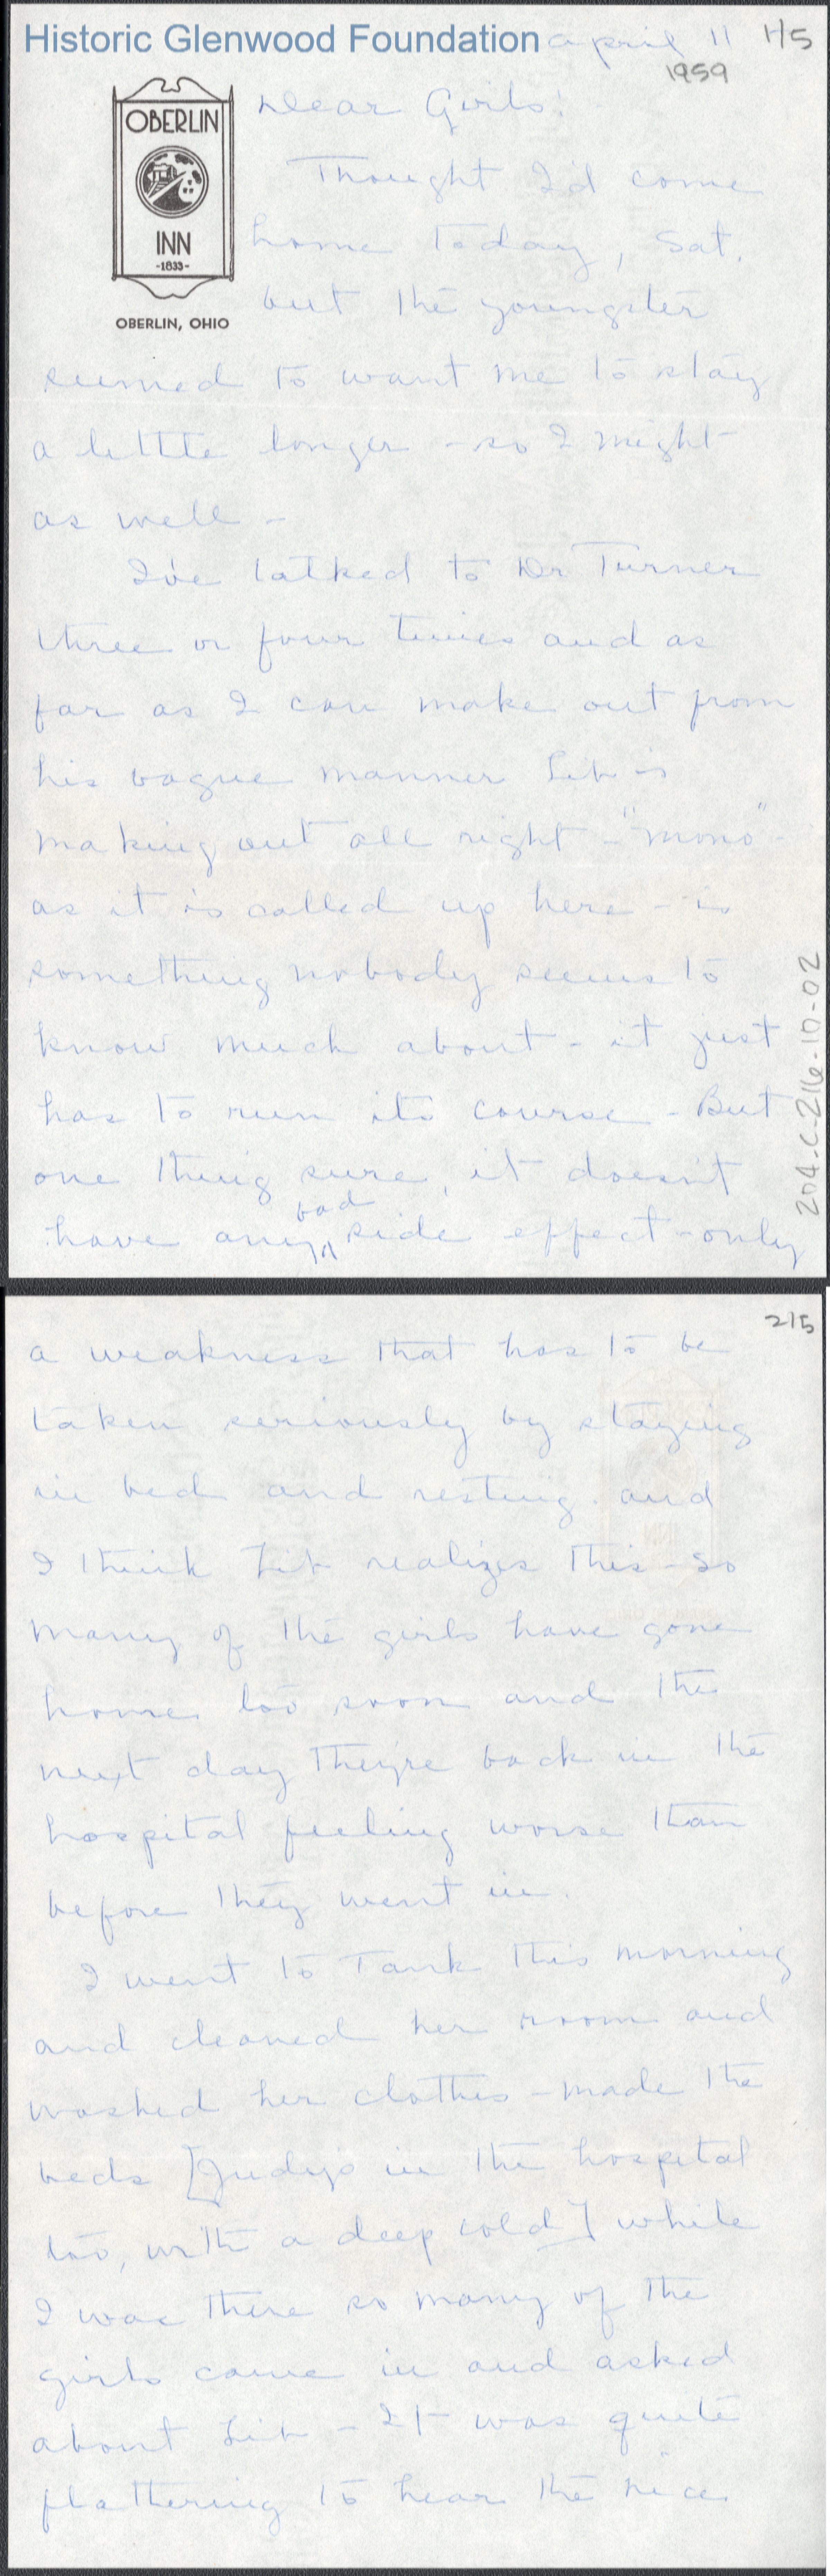 Historic Glenwood Foundation april 11 1/5
1959
OBERLIN
INN
-1833-
OBERLIN, OHIO
Dear Girls:
Thought I'd come
home today, Sat.
but the youngster
seemed to want me to stay
a little longer - so I might
as well -
I've talked to Dr Turner
three or four times and as
far as I can make out from
his vague manner Lib is
making out all right - "mono" -
as it is called up here - is
something nobody seems to
know much about - it just
has to run its course - But
one thing sure, it doesn't
bad
have any side effect - only
204-C-216-10-02
2/5
a weakness that has to be
taken seriously by staying
in bed and resting. and
I think Lib realizes this - so
many of the girls have gone
home too soon and the
next day they're back in the
hospital feeling worse than
before they went in.
I went to Tank this morning
and cleaned her room and
washed her clothes - made the
beds [Judy's in the hospital
too, with a deep cold] while
I was there so many of the
girls came in and asked
about Lib - It was quite
flattering to hear the nice